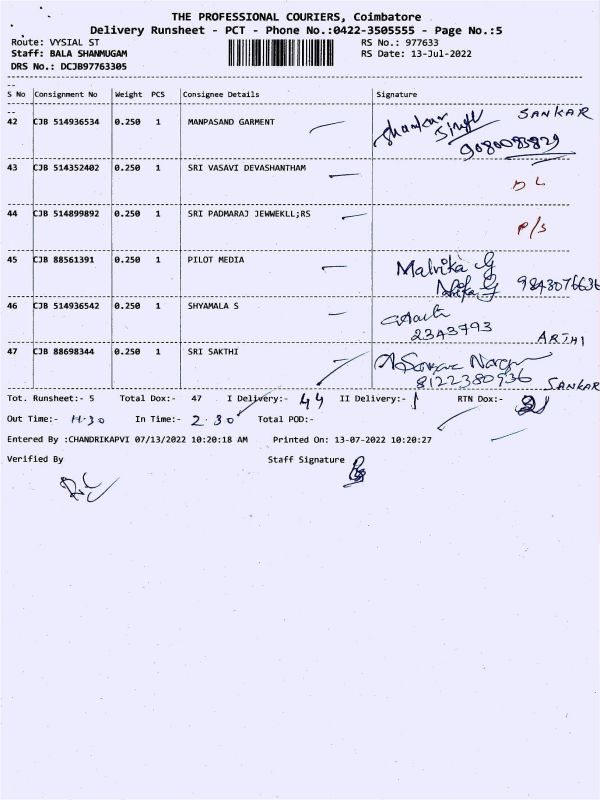 THE PROFESSIONAL COURIERS, Coimbatore
Delivery Runsheet - PCT - Phone No.:0422-3505555 - Page No.:5
Route: VYSIAL ST RS No.: 977633
Staff: BALA SHANMUGAM RS Date: 13-Jul-2022
DRS No.: DCJB97763305
S No Consignment No Weight PCS Consignee Details Signature
42 CJB 514936534 0.250 1 MANPASAND GARMENT Shankar Singh SANKAR
9080083829
43 CJB 514352402 0.250 1 SRI VASAVI DEVASHANTHAM DL
44 CJB 514899892 0.250 1 SRI PADMARAJ JEWWEKLL;RS P/S
45 CJB 88561391 0.250 1 PILOT MEDIA Malvika G
9843076636
46 CJB 514936542 0.250 1 SHYAMALA S
2343793 ARTHI
47 CJB 88698344 0.250 1 SRI SAKTHI
8122380936 SANKAR
Tot. Runsheet:- 5 Total Dox:- 47 I Delivery:- 44 II Delivery:- 1 RTN Dox:-
Out Time:- 11.30 In Time:- 2.30 Total POD:-
Entered By :CHANDRIKAPVI 07/13/2022 10:20:18 AM Printed On: 13-07-2022 10:20:27
Verified By Staff Signature